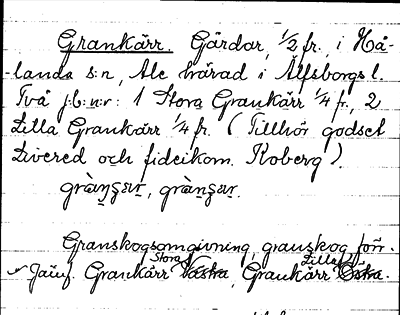 Grankärr. Gårdar, 1/2 fr., i Hå-
-landa s:n, Ale härad i Älfsborgs l.
Två j:b:n:r: 1 Stora Grankärr 1/4 fr., 2
Lilla Grankärr 1/4 fr. (Tillhör godset
Livered och fideikom. Koberg).
Granskogsomgivning, granskog förr.
Stora Lilla
Jämf. Grankärr Västra, Grankärr Östra.